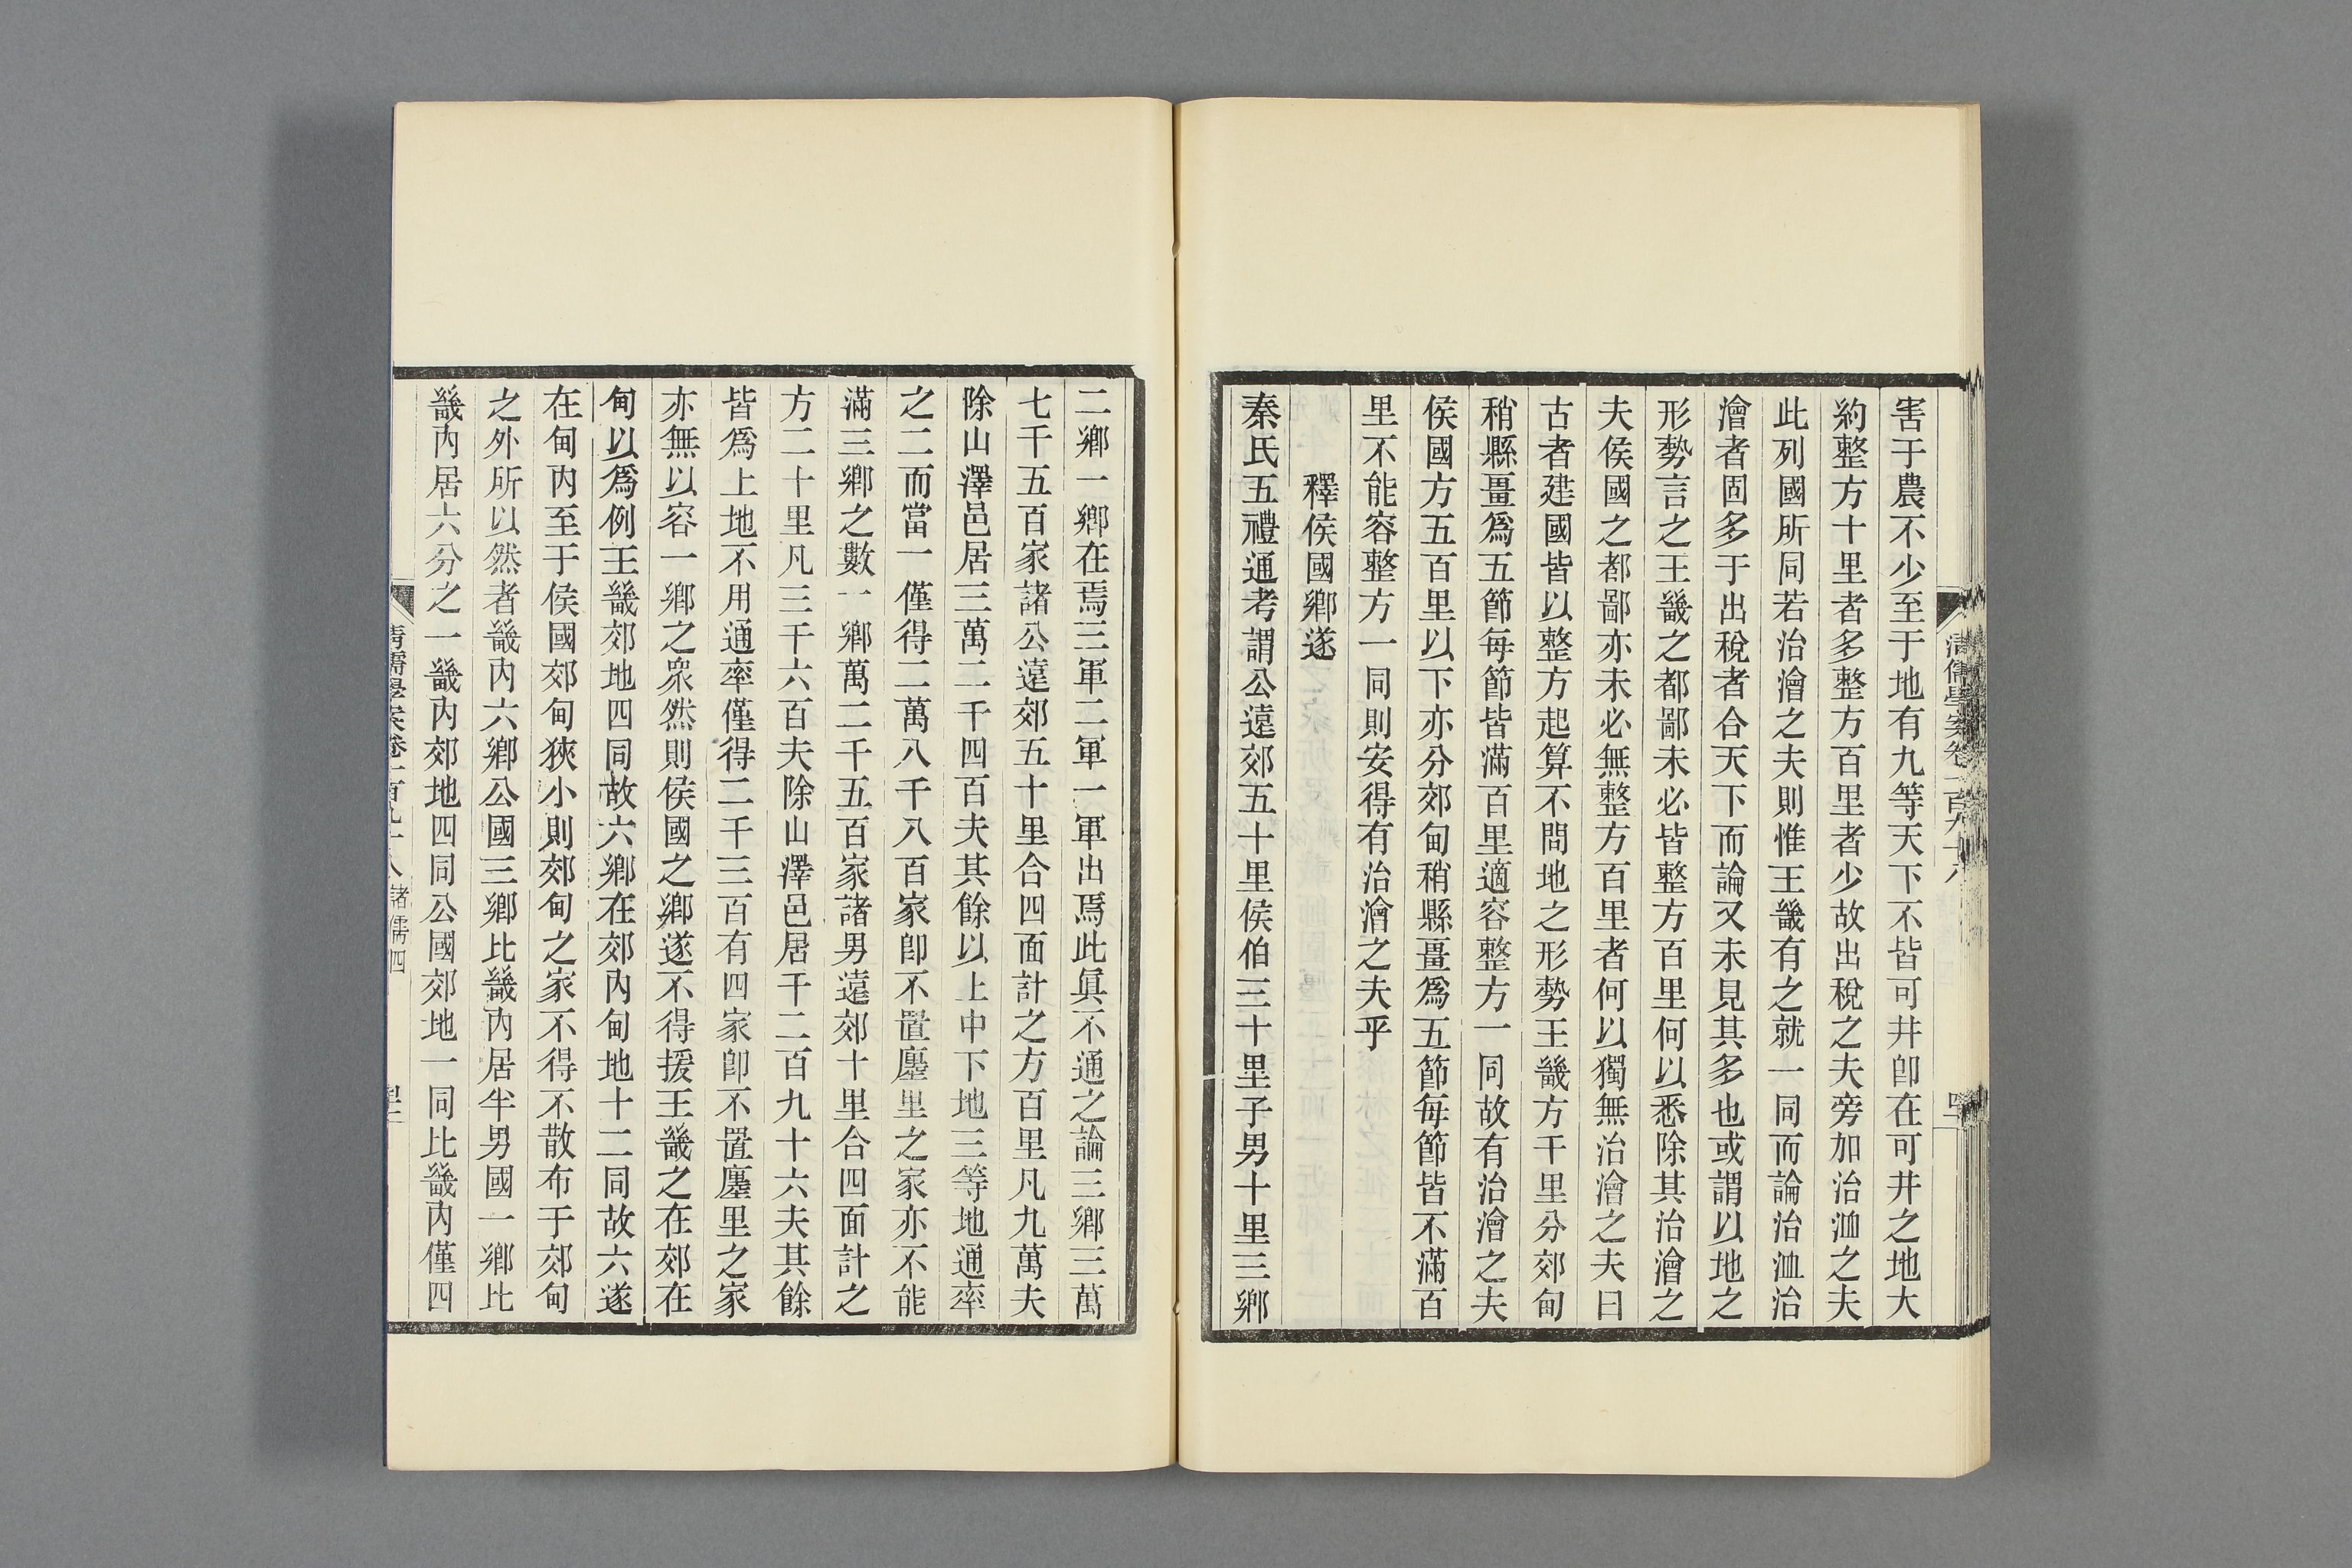 害于農不少至于地有九等天下不皆可井卽在可井之地大
約整方十里者多整方百里者少故出稅之夫旁加治洫之夫
此列國所同若治澮之夫則惟王畿有之就一同而論治洫治
澮者固多于出稅者合天下而論又未見其多也或謂以地之
形勢言之王畿之都鄙未必皆整方百里何以悉除其治澮之
夫侯國之都鄙亦未必無整方百里者何以獨無治澮之夫曰
古者建國皆以整方起算不問地之形勢王畿方千里分郊甸
稍縣畺爲五節每節皆滿百里適容整方一同故有治澮之夫
侯國方五百里以下亦分郊甸稍縣畺爲五節每節皆不滿百
里不能容整方一同則安得有治澮之夫乎
釋侯國鄉遂
秦氏五禮通考謂公遠郊五十里侯伯三十里子男十里三鄉
二鄉一鄉在焉三軍二軍一軍出焉此眞不通之論三鄉三萬
七千五百家諸公遠郊五十里合四面計之方百里凡九萬夫
除山澤邑居三萬二千四百夫其餘以上中下地三等地通率
之二而當一僅得二萬八千八百家卽不置廛里之家亦不能
滿三鄉之數一鄉萬二千五百家諸男遠郊十里合四面計之
方二十里凡三千六百夫除山澤邑居千二百九十六夫其餘
皆爲上地不用通率僅得二千三百有四家卽不置廛里之家
亦無以容一鄉之衆然則侯國之鄉遂不得援王畿之在郊在
甸以爲例王畿郊地四同故六鄉在郊內甸地十二同故六遂
在甸內至于侯國郊甸狹小則郊甸之家不得不散布于郊甸
之外所以然者畿內六鄉公國三鄉比畿內居半男國一鄉比
畿內居六分之一畿內郊地四同公國郊地一同比畿內僅四
清儒學案卷一百九十八 諸儒四